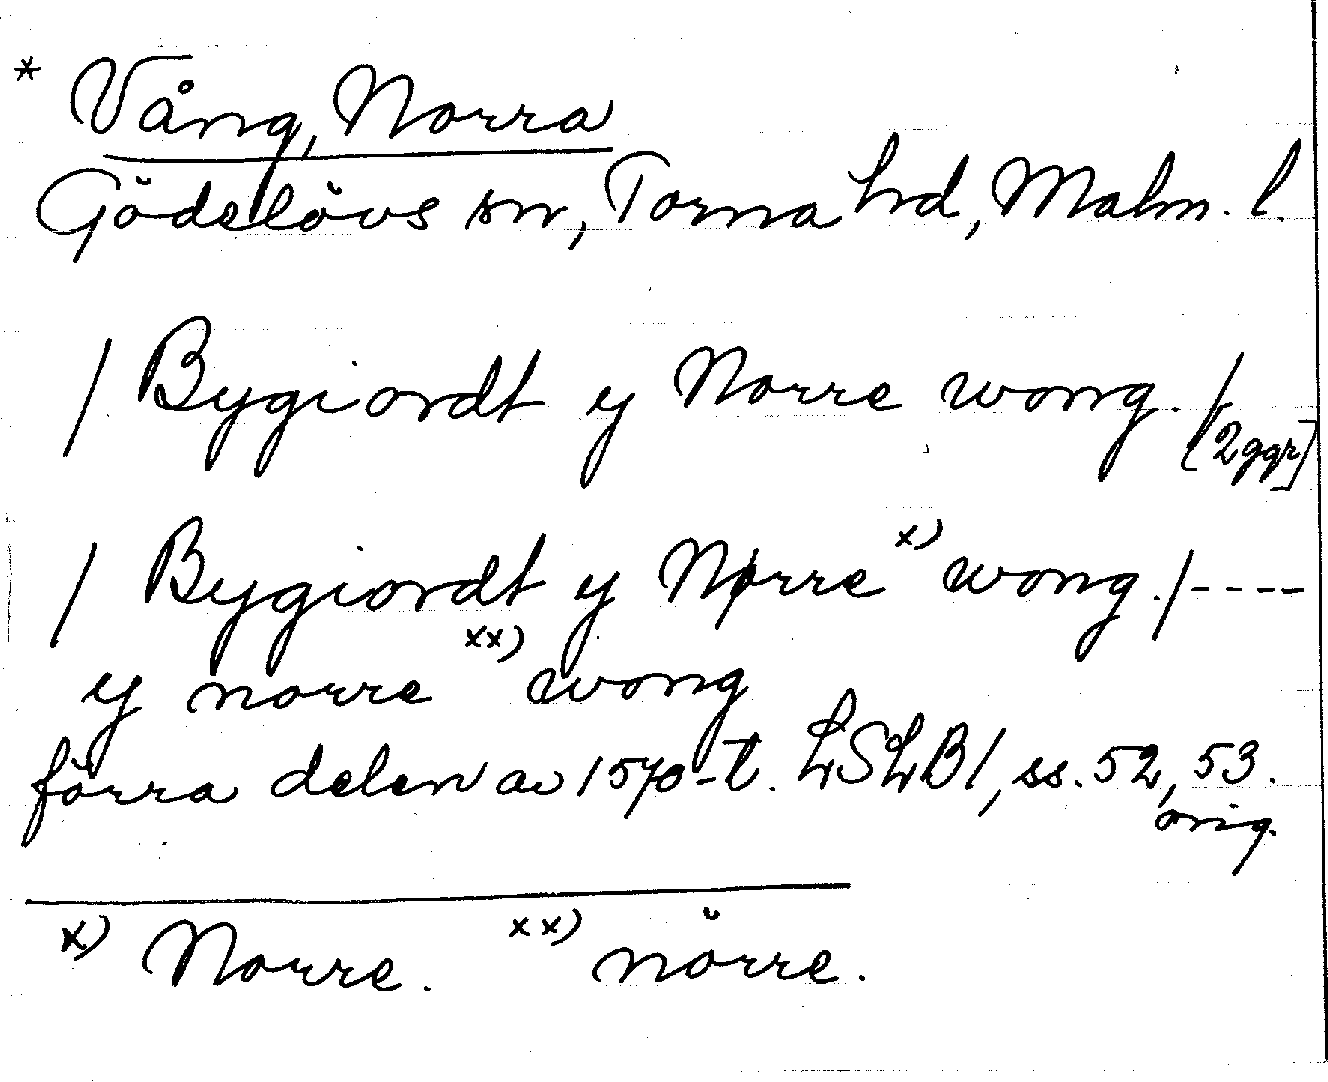 * Vång, Norra
Gödelövs sn, Torna hd, Malm. l.
/ Bygiordt y Norre wong. / [2 ggr]
/ Bygiordt y Nørre x) wong. / ----
y norre xx) wong
förra delen av 1570-t. LSLB1, ss. 52, 53.
orig.
x) Norre. xx) nörre.